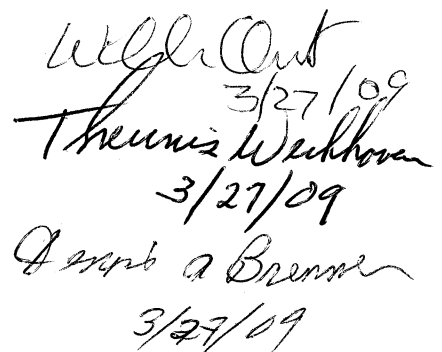 3/27/09
Theunis Werkhoven
3/27/09
Dennis A Brenner
3/27/09